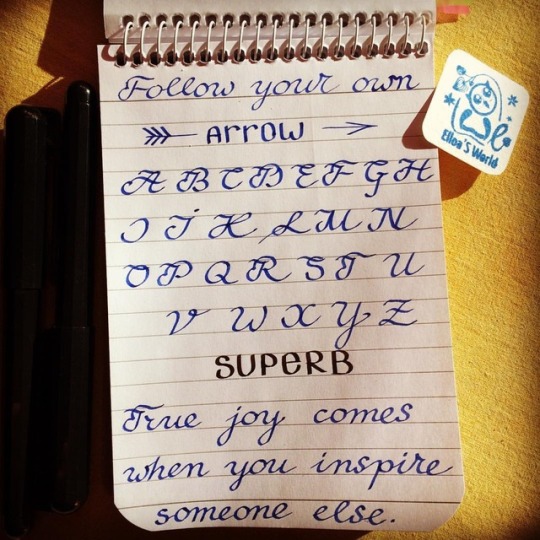 Follow your own
ARROW
A B C D E F G H
I J K L M N
O P Q R S T U
V W X Y Z
SUPERB
True joy comes
when you inspire
someone else.
Elloa'S World